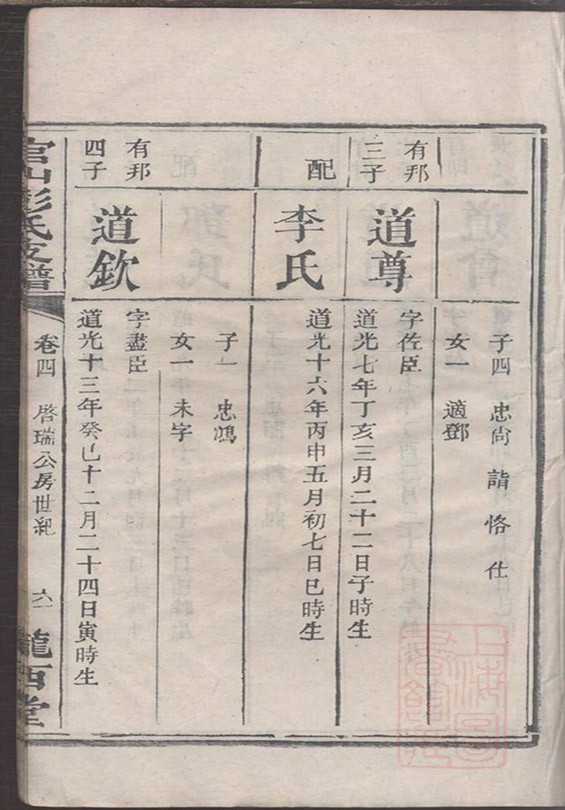 子四 忠尚 詣 恪 仕
女一 適鄧
有邦
三子
道尊
字佐臣
道光七年丁亥三月二十二日子時生
配
李氏
道光十六年丙申五月初七日巳時生
子一 忠鴻
女一 未字
有邦
四子
道欽
字藎臣
道光十三年癸巳十二月二十四日寅時生
官山彭氏支譜
卷四 啓瑞公房世紀
六一
隴西堂